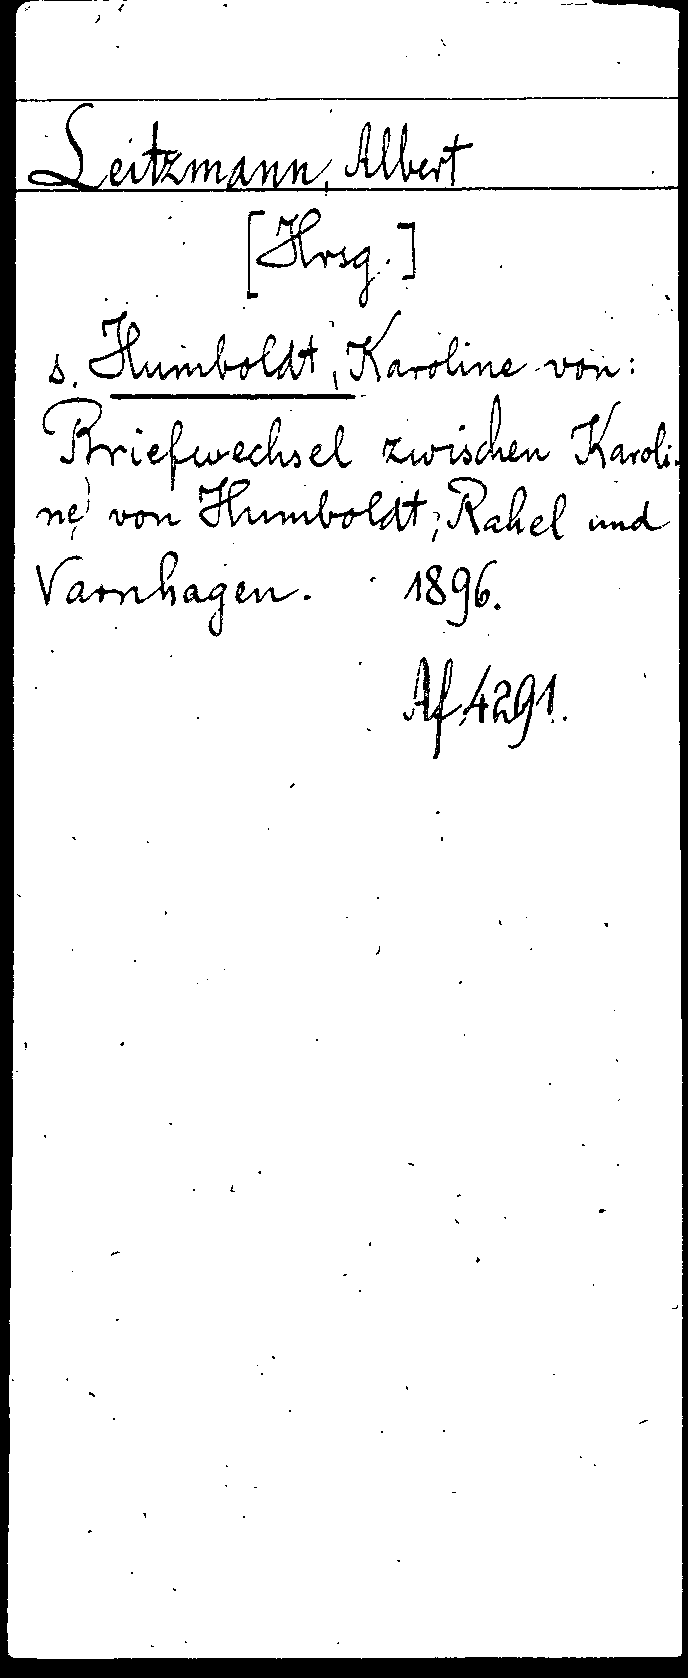 Leitzmann, Albert
[Hrsg.]
s. Humboldt, Karoline von:
Briefwechsel zwischen Karoli-
ne von Humboldt, Rahel und
Varnhagen. 1896.
Af 4291.